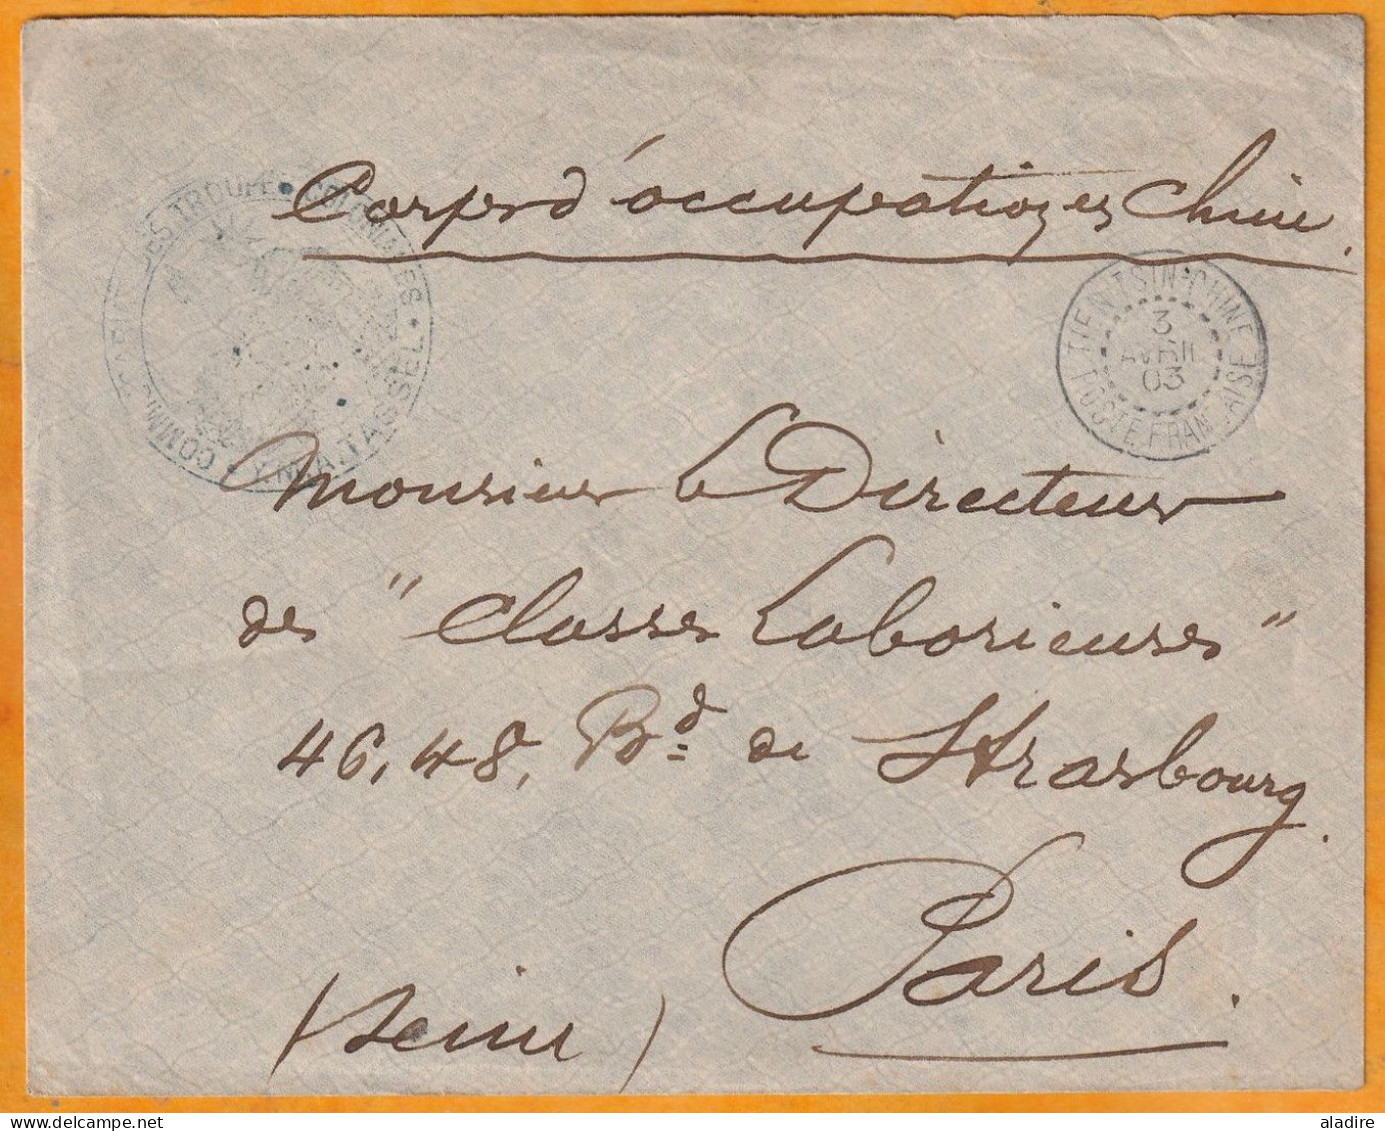 Corps d'occupation en Chine.
COMMISSARIAT DES TROUPES COLONIALES
TIENTSIN-CHINE
3
AVRIL
03
POSTE FRANÇAISE
Monsieur le Directeur
des "Classes Laborieuses"
46, 48, Bd de Strasbourg.
Paris.
(Seine)
aladire